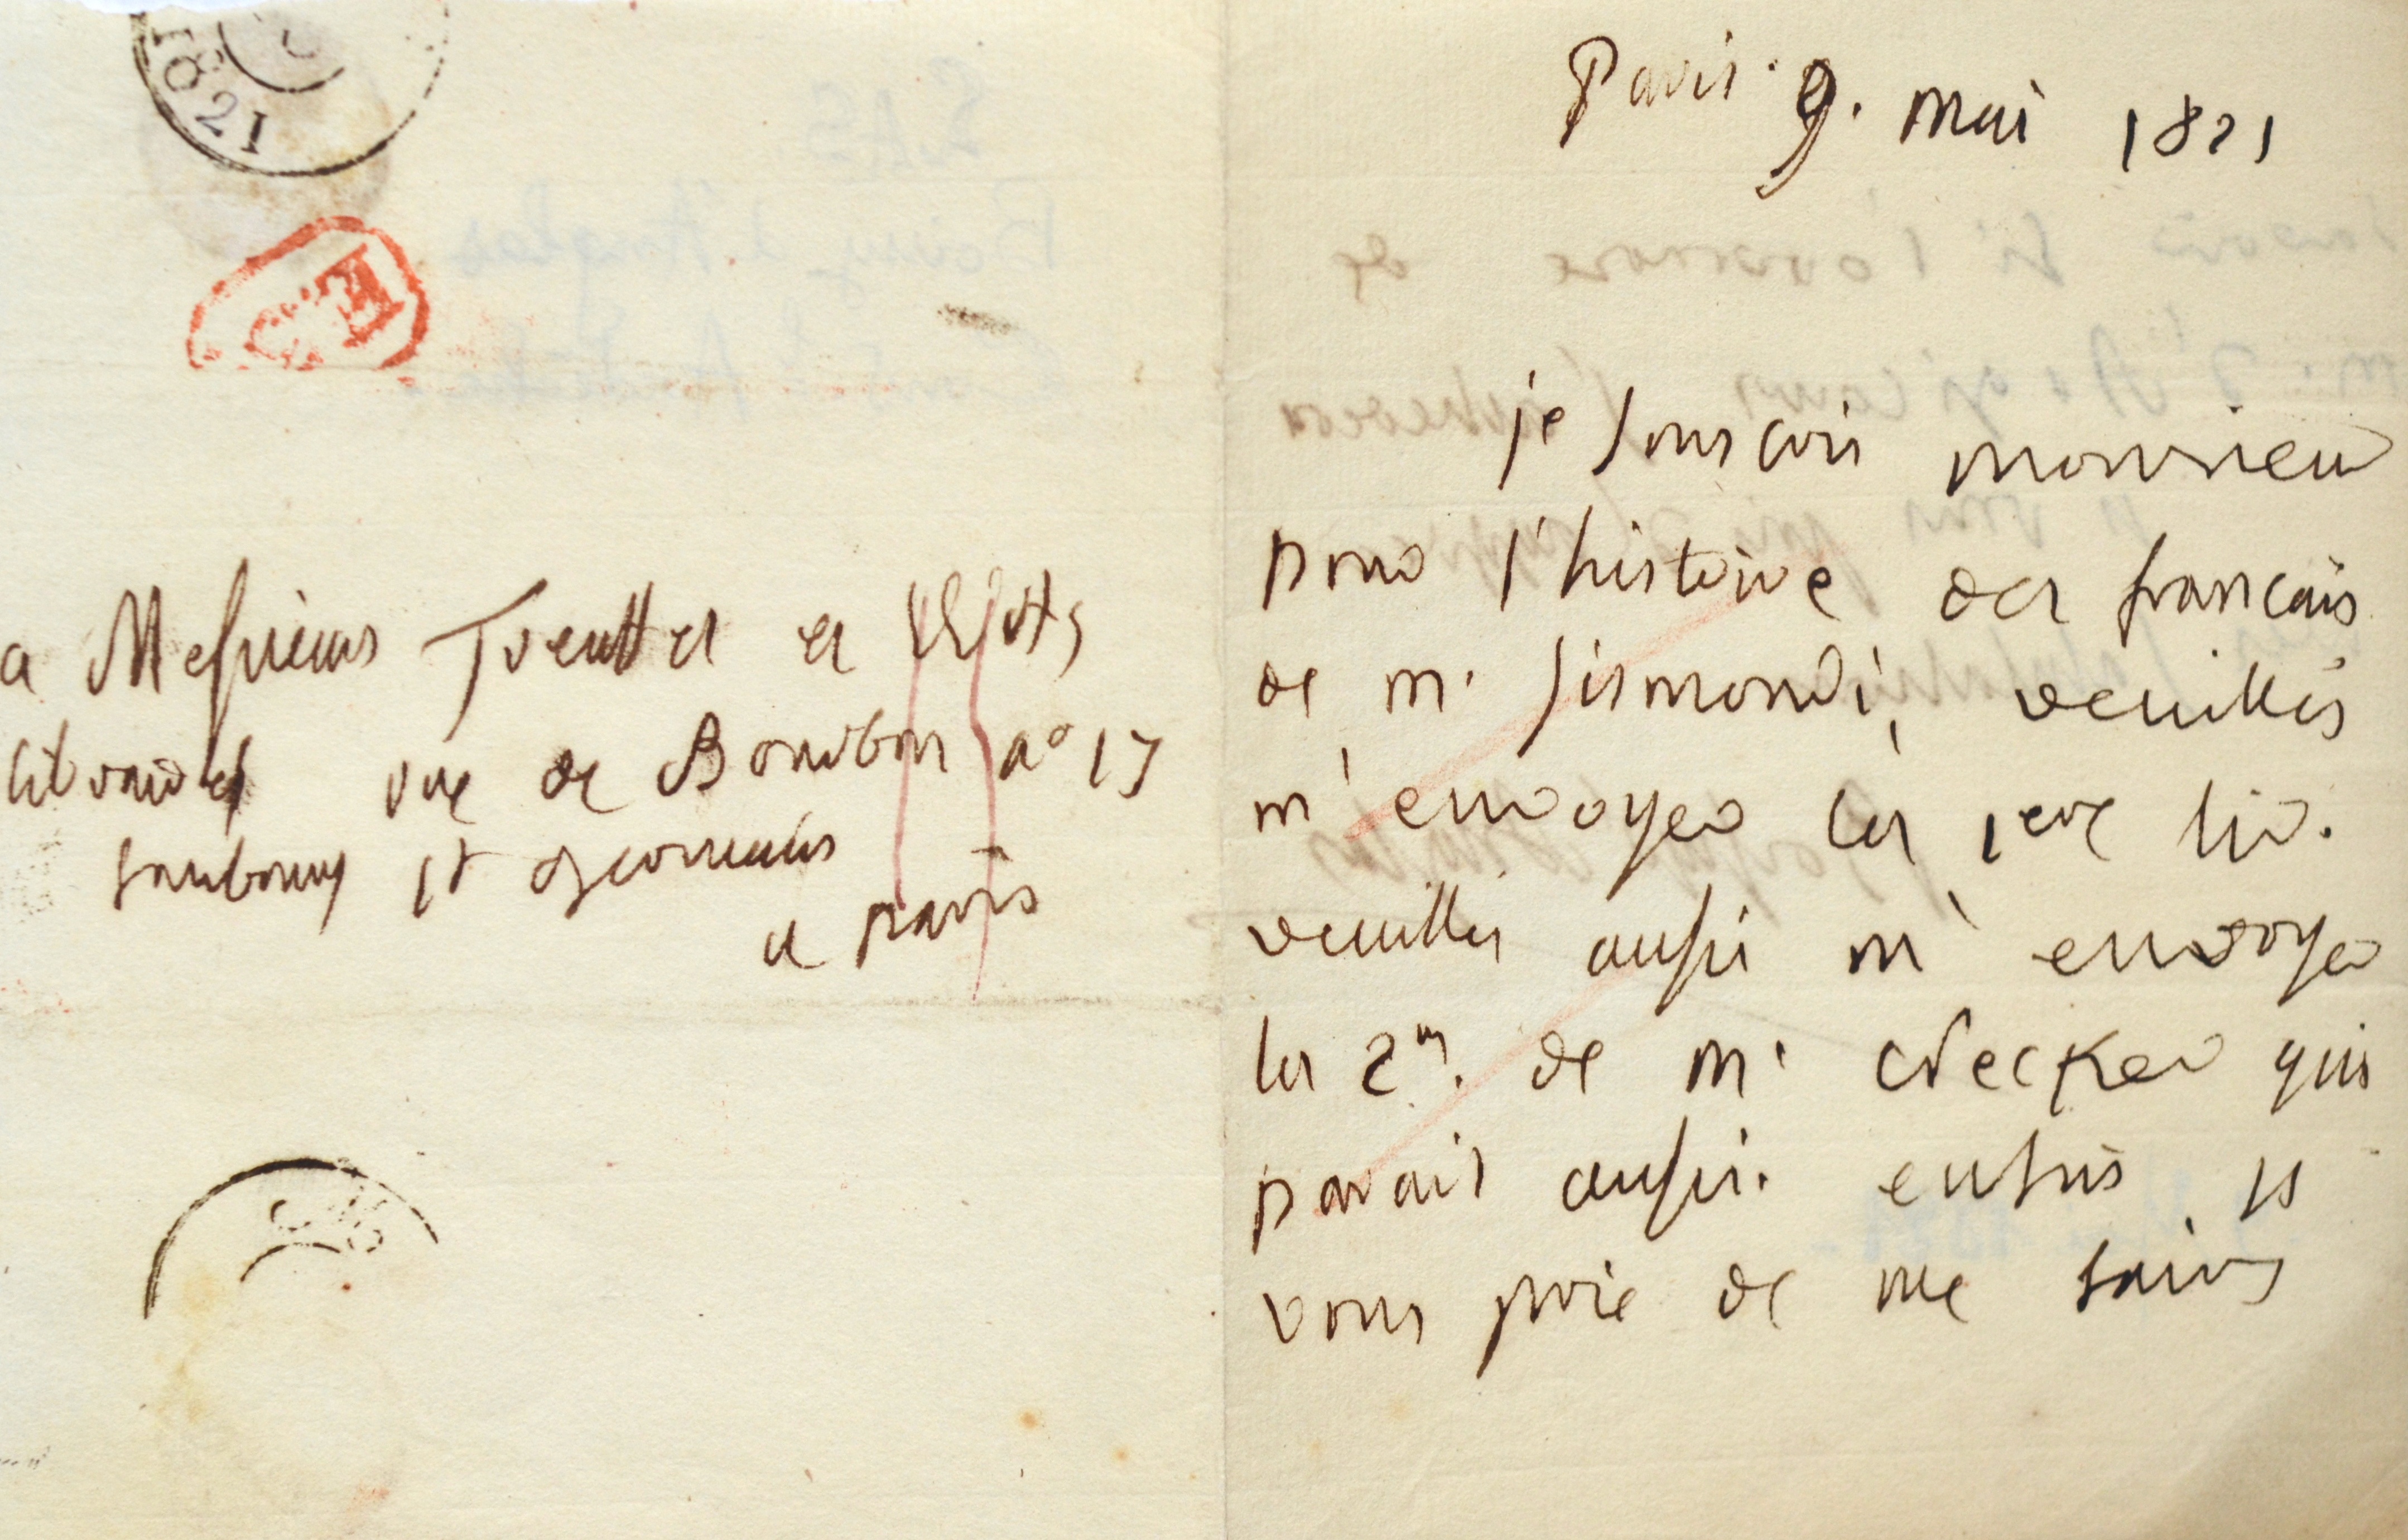 1821
a Messieurs Treuttel et Wurtz
libraires rue de Bourbon n° 17
faubourg st germain
a paris
Paris. 9. mai 1821
je souscris monsieur
pour l'histoire des francais
de m. sismondi, veuillés
m'envoyer la 1ere liv.
veuillés aussi m'envoyer
la 2me. de m. Necker qui
parait aussi. enfin je
vous prie de me faire